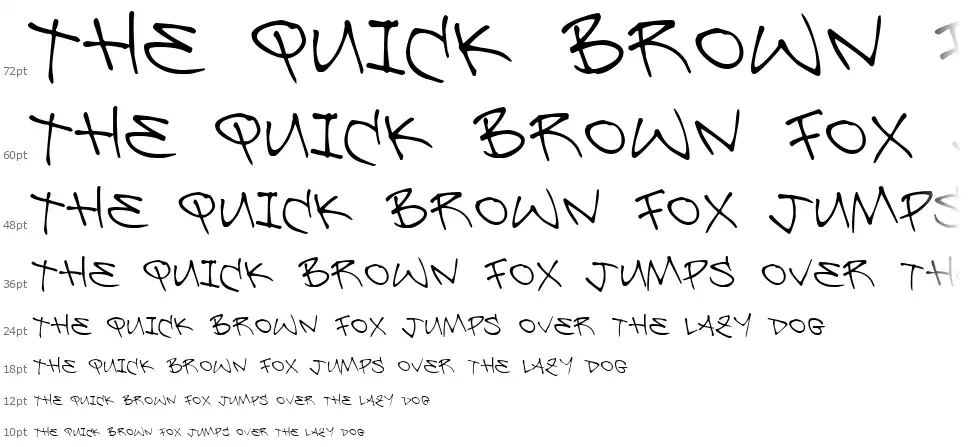 72pt THE QUICK BROWN
60pt THE QUICK BROWN FOX
48pt THE QUICK BROWN FOX JUMPS
36pt THE QUICK BROWN FOX JUMPS OVER TH
24pt THE QUICK BROWN FOX JUMPS OVER THE LAZY DOG
18pt THE QUICK BROWN FOX JUMPS OVER THE LAZY DOG
12pt THE QUICK BROWN FOX JUMPS OVER THE LAZY DOG
10pt THE QUICK BROWN FOX JUMPS OVER THE LAZY DOG